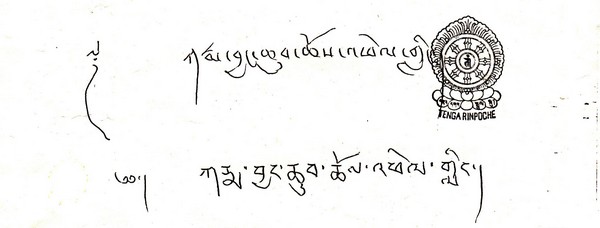 ཀརྨ་བྱང་ཆུབ་ཆོས་འཕེལ་གླིང
TENGA RINPOCHE
༄༅། ཀརྨ་བྱང་ཆུབ་ཆོས་འཕེལ་གླིང་།